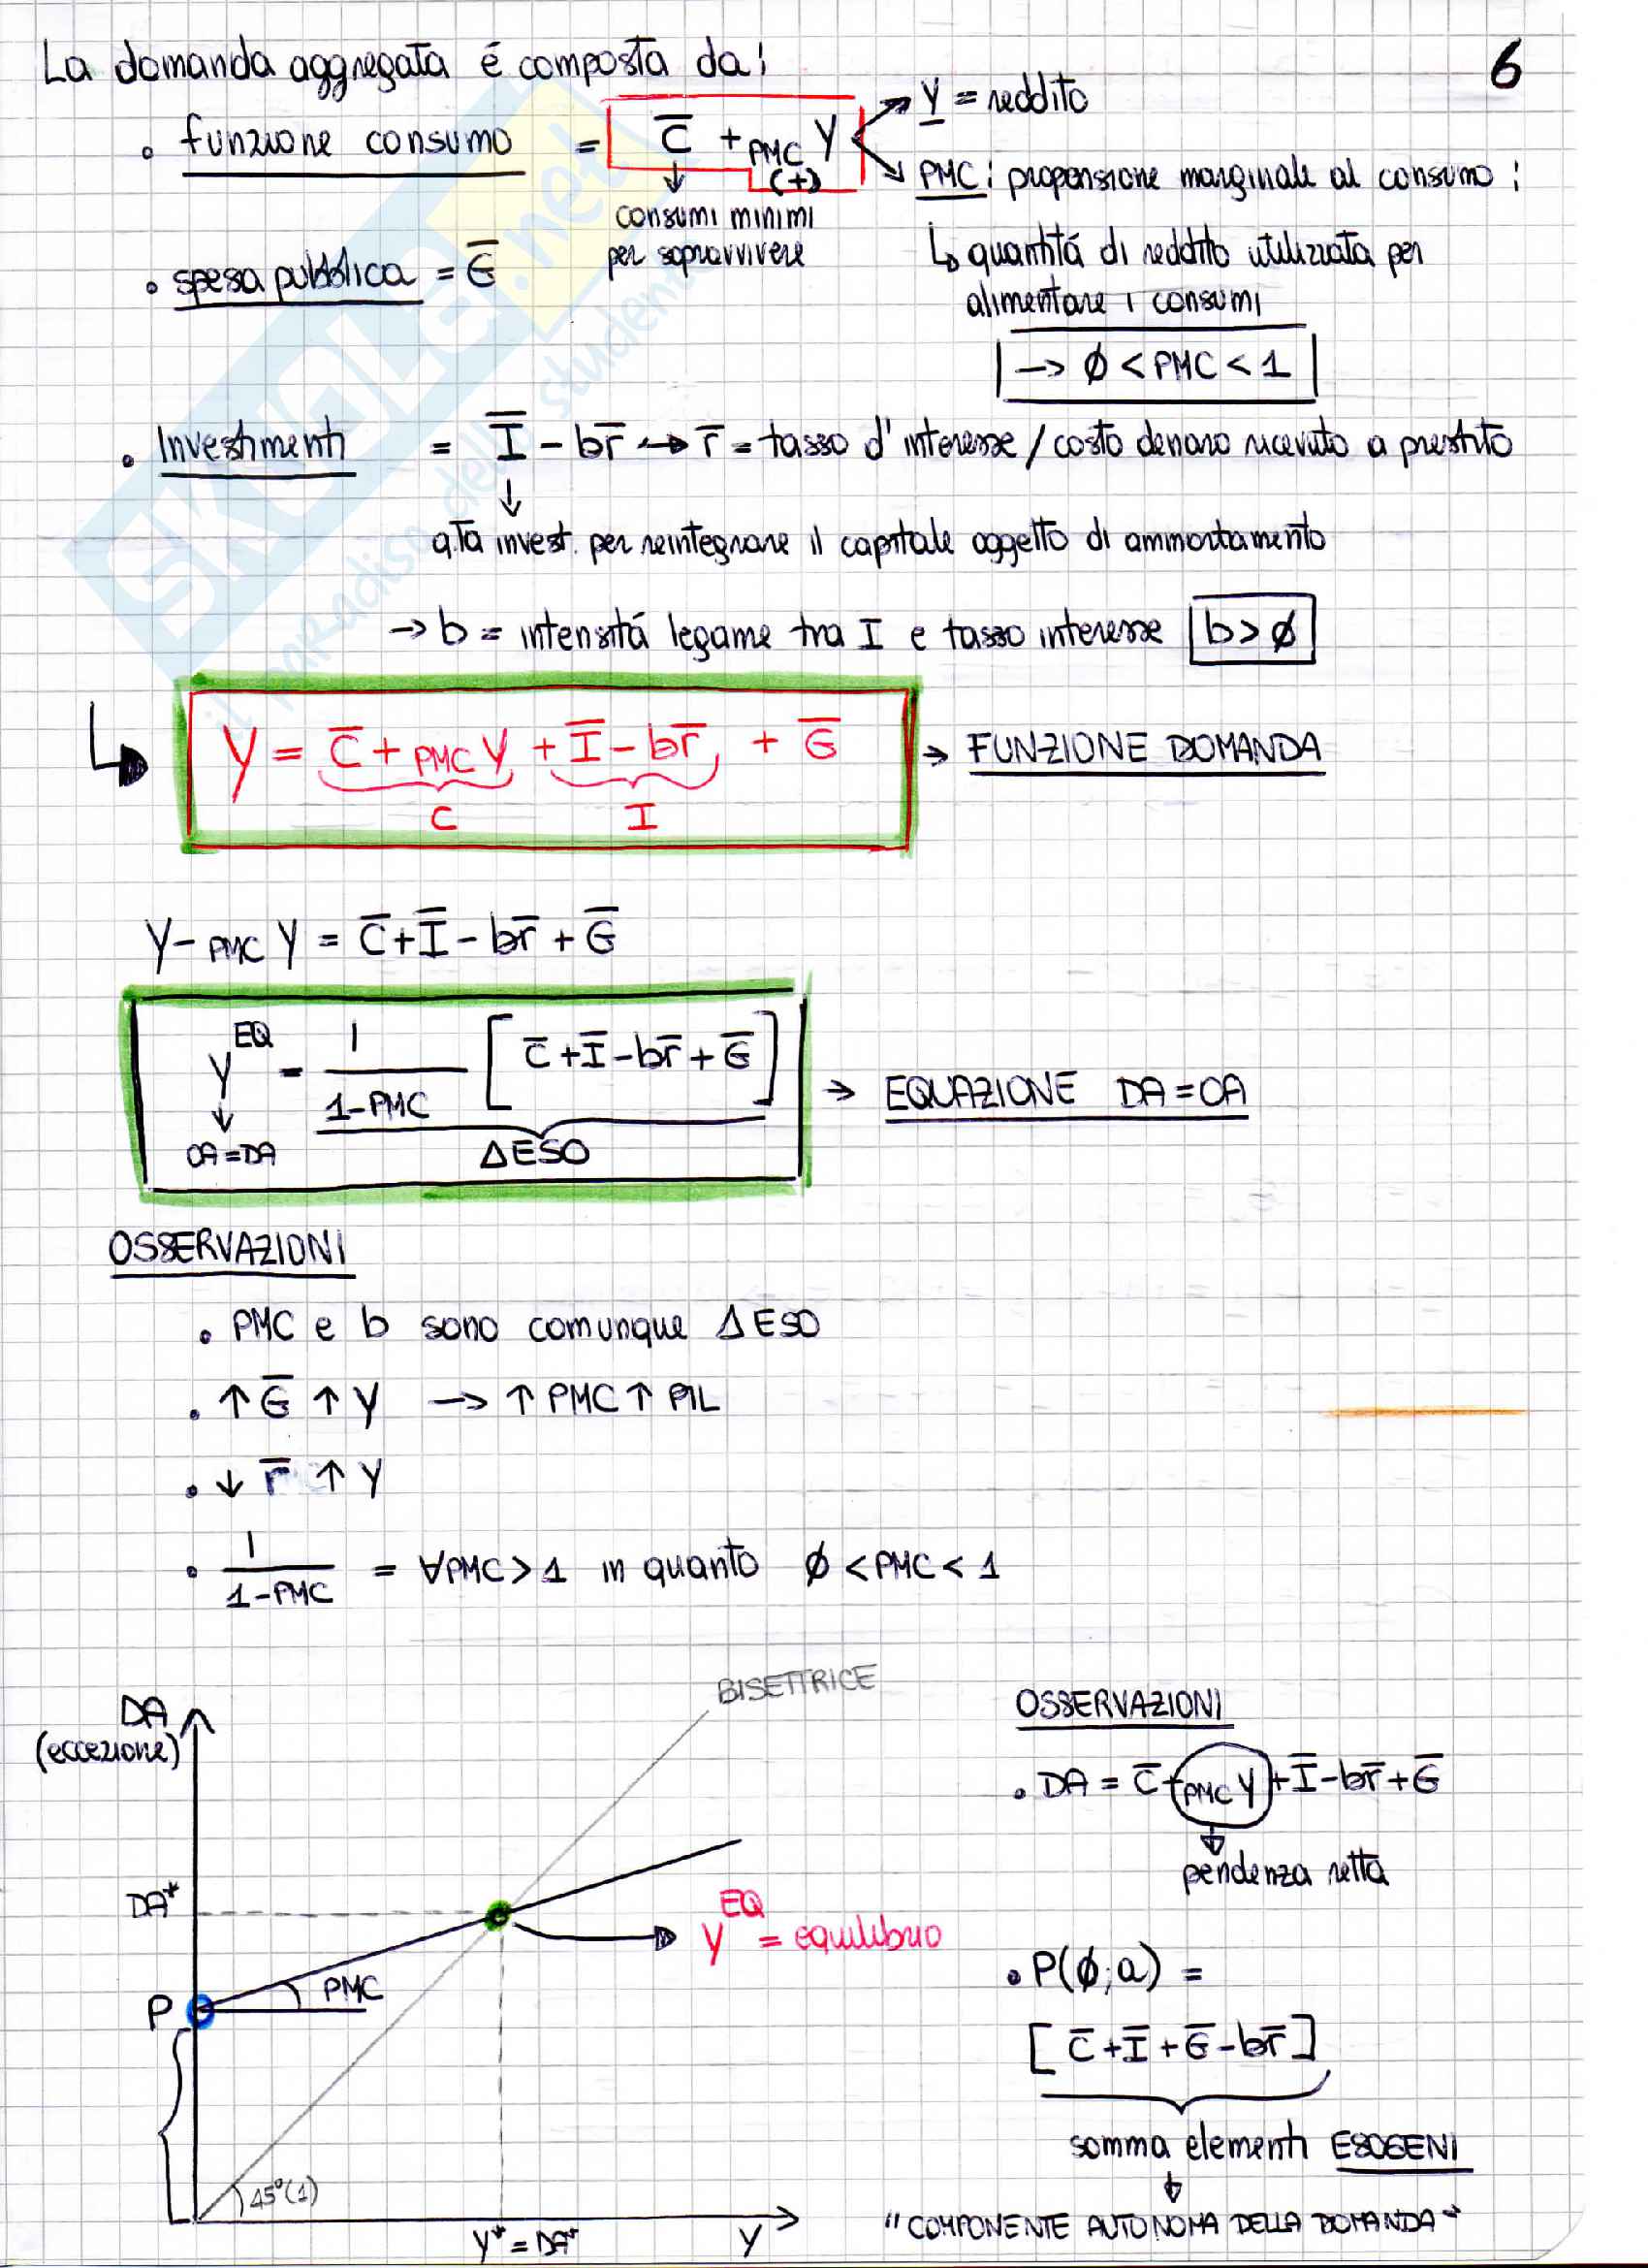 6
La domanda aggregata é composta da:
• funzione consumo = C̅ + PMC Y
(+)
Y = reddito
PMC: propensione marginale al consumo:
↓ consumi minimi
per sopravvivere
↳ quantitá di reddito utilizzata per
alimentare i consumi
→ ∅ < PMC < 1
• spesa pubblica = G̅
• Investimenti = I̅ - br̅ → r̅ = tasso d'interesse / costo denaro ricevuto a prestito
↓
q.tà invest. per reintegrare il capitale oggetto di ammortamento
→ b = intensitá legame tra I e tasso interesse b > ∅
Y = C̅ + PMC Y + I̅ - br̅ + G̅ → FUNZIONE DOMANDA
C I
Y - PMC Y = C̅ + I̅ - br̅ + G̅
Y^EQ = 1/(1-PMC) [C̅ + I̅ - br̅ + G̅] → EQUAZIONE DA = OA
↓
OA = DA ΔESO
OSSERVAZIONI
• PMC e b sono comunque ΔESO
• ↑ G̅ ↑ Y → ↑ PMC ↑ PIL
• ↓ r̅ ↑ Y
• 1/(1-PMC) = ∀PMC > 1 in quanto ∅ < PMC < 1
BISETTRICE
DA
(eccezione)
DA*
Y^EQ = equilibrio
P
PMC
45°(1)
Y* = DA*
Y
OSSERVAZIONI
• DA = C̅ + PMC Y + I̅ - br̅ + G̅
↓
pendenza retta
• P(∅; a) =
[C̅ + I̅ + G̅ - br̅]
somma elementi ESOGENI
↓
"COMPONENTE AUTONOMA DELLA DOMANDA"
SKUOLA.net
il paradiso dello studente